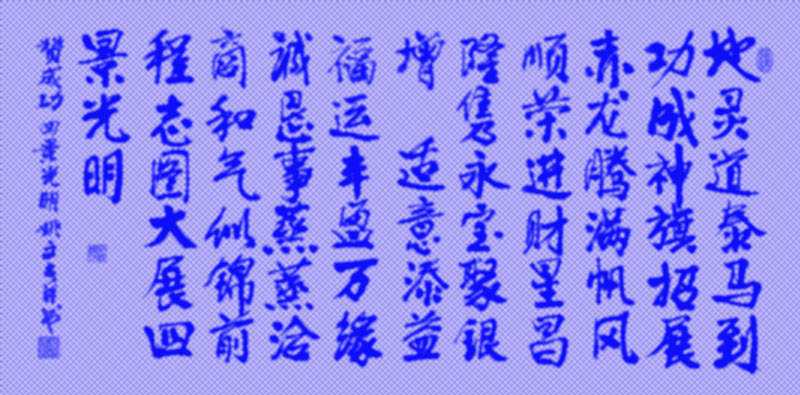 地灵道泰马到
功成神旗招展
赤龙腾满帆风
顺荣进财星昌
隆隽永宝聚银
增适意添益
福运丰盈万缘
诚恳事蒸蒸洽
商和气似锦前
程志图大展四
景光明
赞成功四景光明